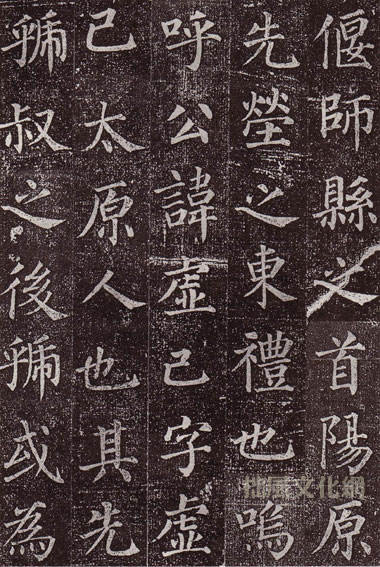 偃師縣之首陽原
先塋之東禮也嗚
呼公諱虛己字虛
己太原人也其先
虢叔之後虢或為
文化網